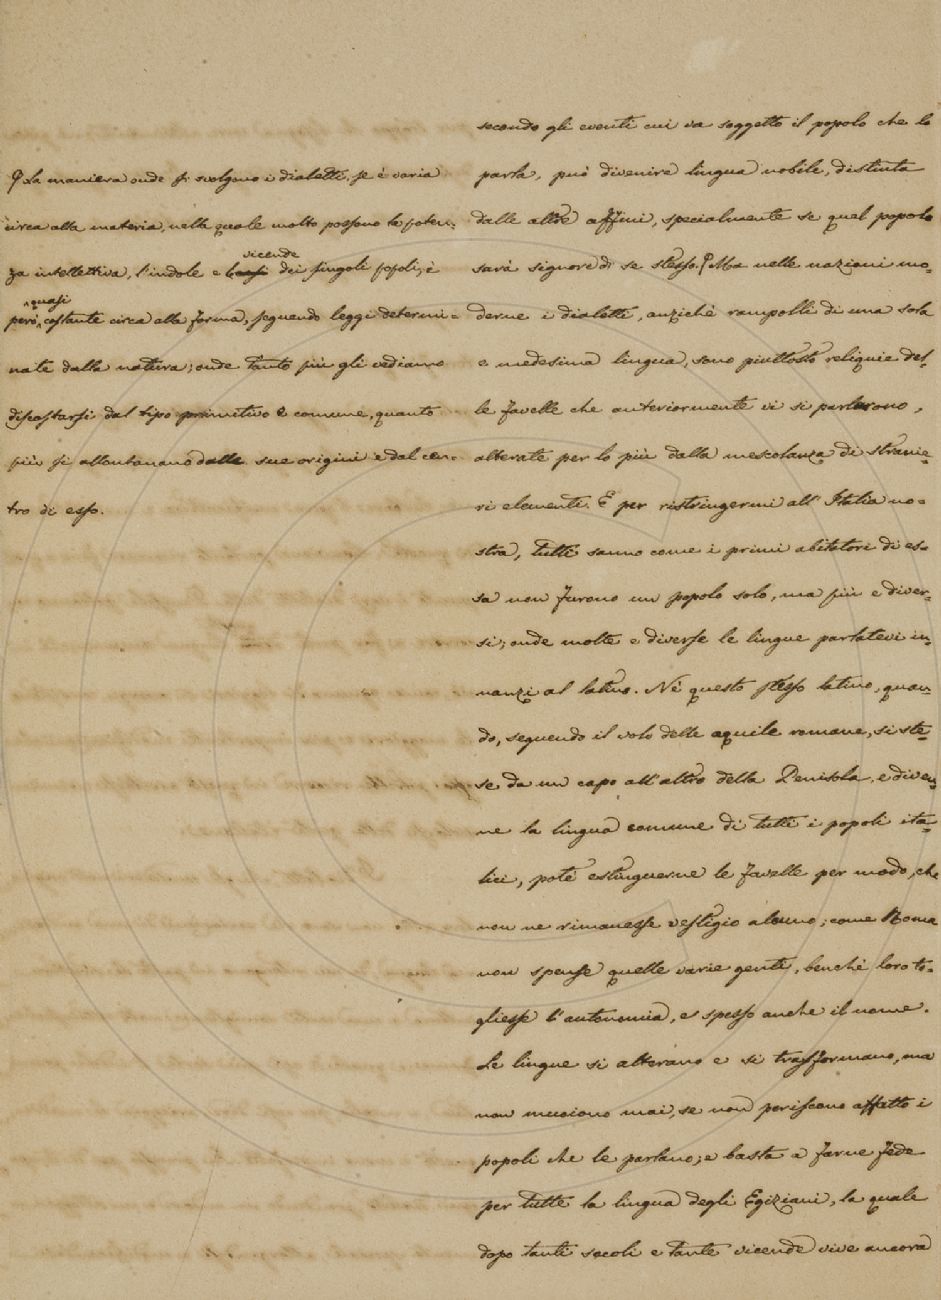 secondo gli eventi cui va soggetto il popolo che lo
parla, può divenire lingua nobile, distinta
dalle altre affini, specialmente se quel popolo
sarà signore di se stesso. Ma nelle nazioni mo=
derne i dialetti, anzichè rampolli di una sola
e medesima lingua, sono piuttosto reliquie del=
le favelle che anteriormente vi si parlarono,
alterate per lo più dalla mescolanza di stranie=
ri elementi. E per ristringermi all'Italia no=
stra, tutti sanno come i primi abitatori di es=
sa non furono un popolo solo, ma più e diver=
si; onde molte e diverse le lingue parlatevi in=
nanzi al latino. Nè questo stesso latino, quan=
do, seguendo il volo delle aquile romane, si ste=
se da un capo all'altro della Penisola, e diven=
ne la lingua comune di tutti i popoli ita=
lici, potè estinguerne le favelle per modo, che
non ne rimanesse vestigio alcuno; come Roma
non spense quelle varie genti, benchè loro to=
gliesse l'autonomia, e spesso anche il nome.
Le lingue si alterano e si trasformano, ma
non muoiono mai, se non periscono affatto i
popoli che le parlano; e basta a farne fede
per tutte la lingua degli Egiziani, la quale
dopo tanti secoli e tante vicende vive ancora
La maniera onde si svolgono i dialetti, se è varia
circa alla materia, nella quale molto possono la poten=
vicende
za intellettiva, l'indole e dei singoli popoli, è
quasi
però costante circa alla forma, seguendo leggi determi=
nate dalla natura; onde tanto più gli vediamo
discostarsi dal tipo primitivo e comune, quanto
più si allontanano dalle sue origini e dal cen=
tro di esso.